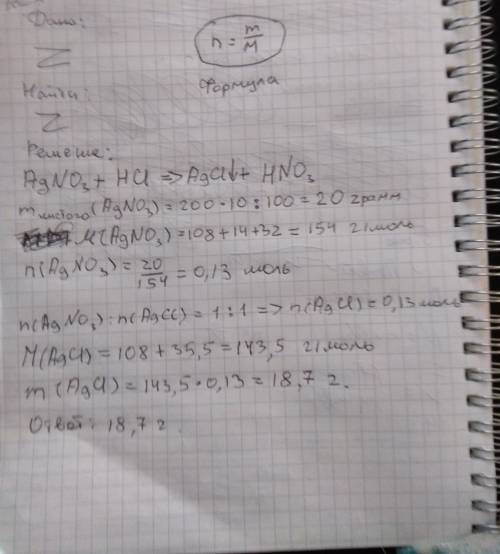 Дано:
n = m/M
Z
Найти:
Формула
Z
Решение:
AgNO₃ + HCl => AgCl↓ + HNO₃
m чистого (AgNO₃) = 200 · 10 : 100 = 20 грамм
M(AgNO₃) = 108 + 14 + 32 = 154 г/моль
n(AgNO₃) = 20/154 = 0,13 моль
n(AgNO₃) : n(AgCl) = 1 : 1 => n(AgCl) = 0,13 моль
M(AgCl) = 108 + 35,5 = 143,5 г/моль
m(AgCl) = 143,5 · 0,13 = 18,7 г.
Ответ: 18,7 г.